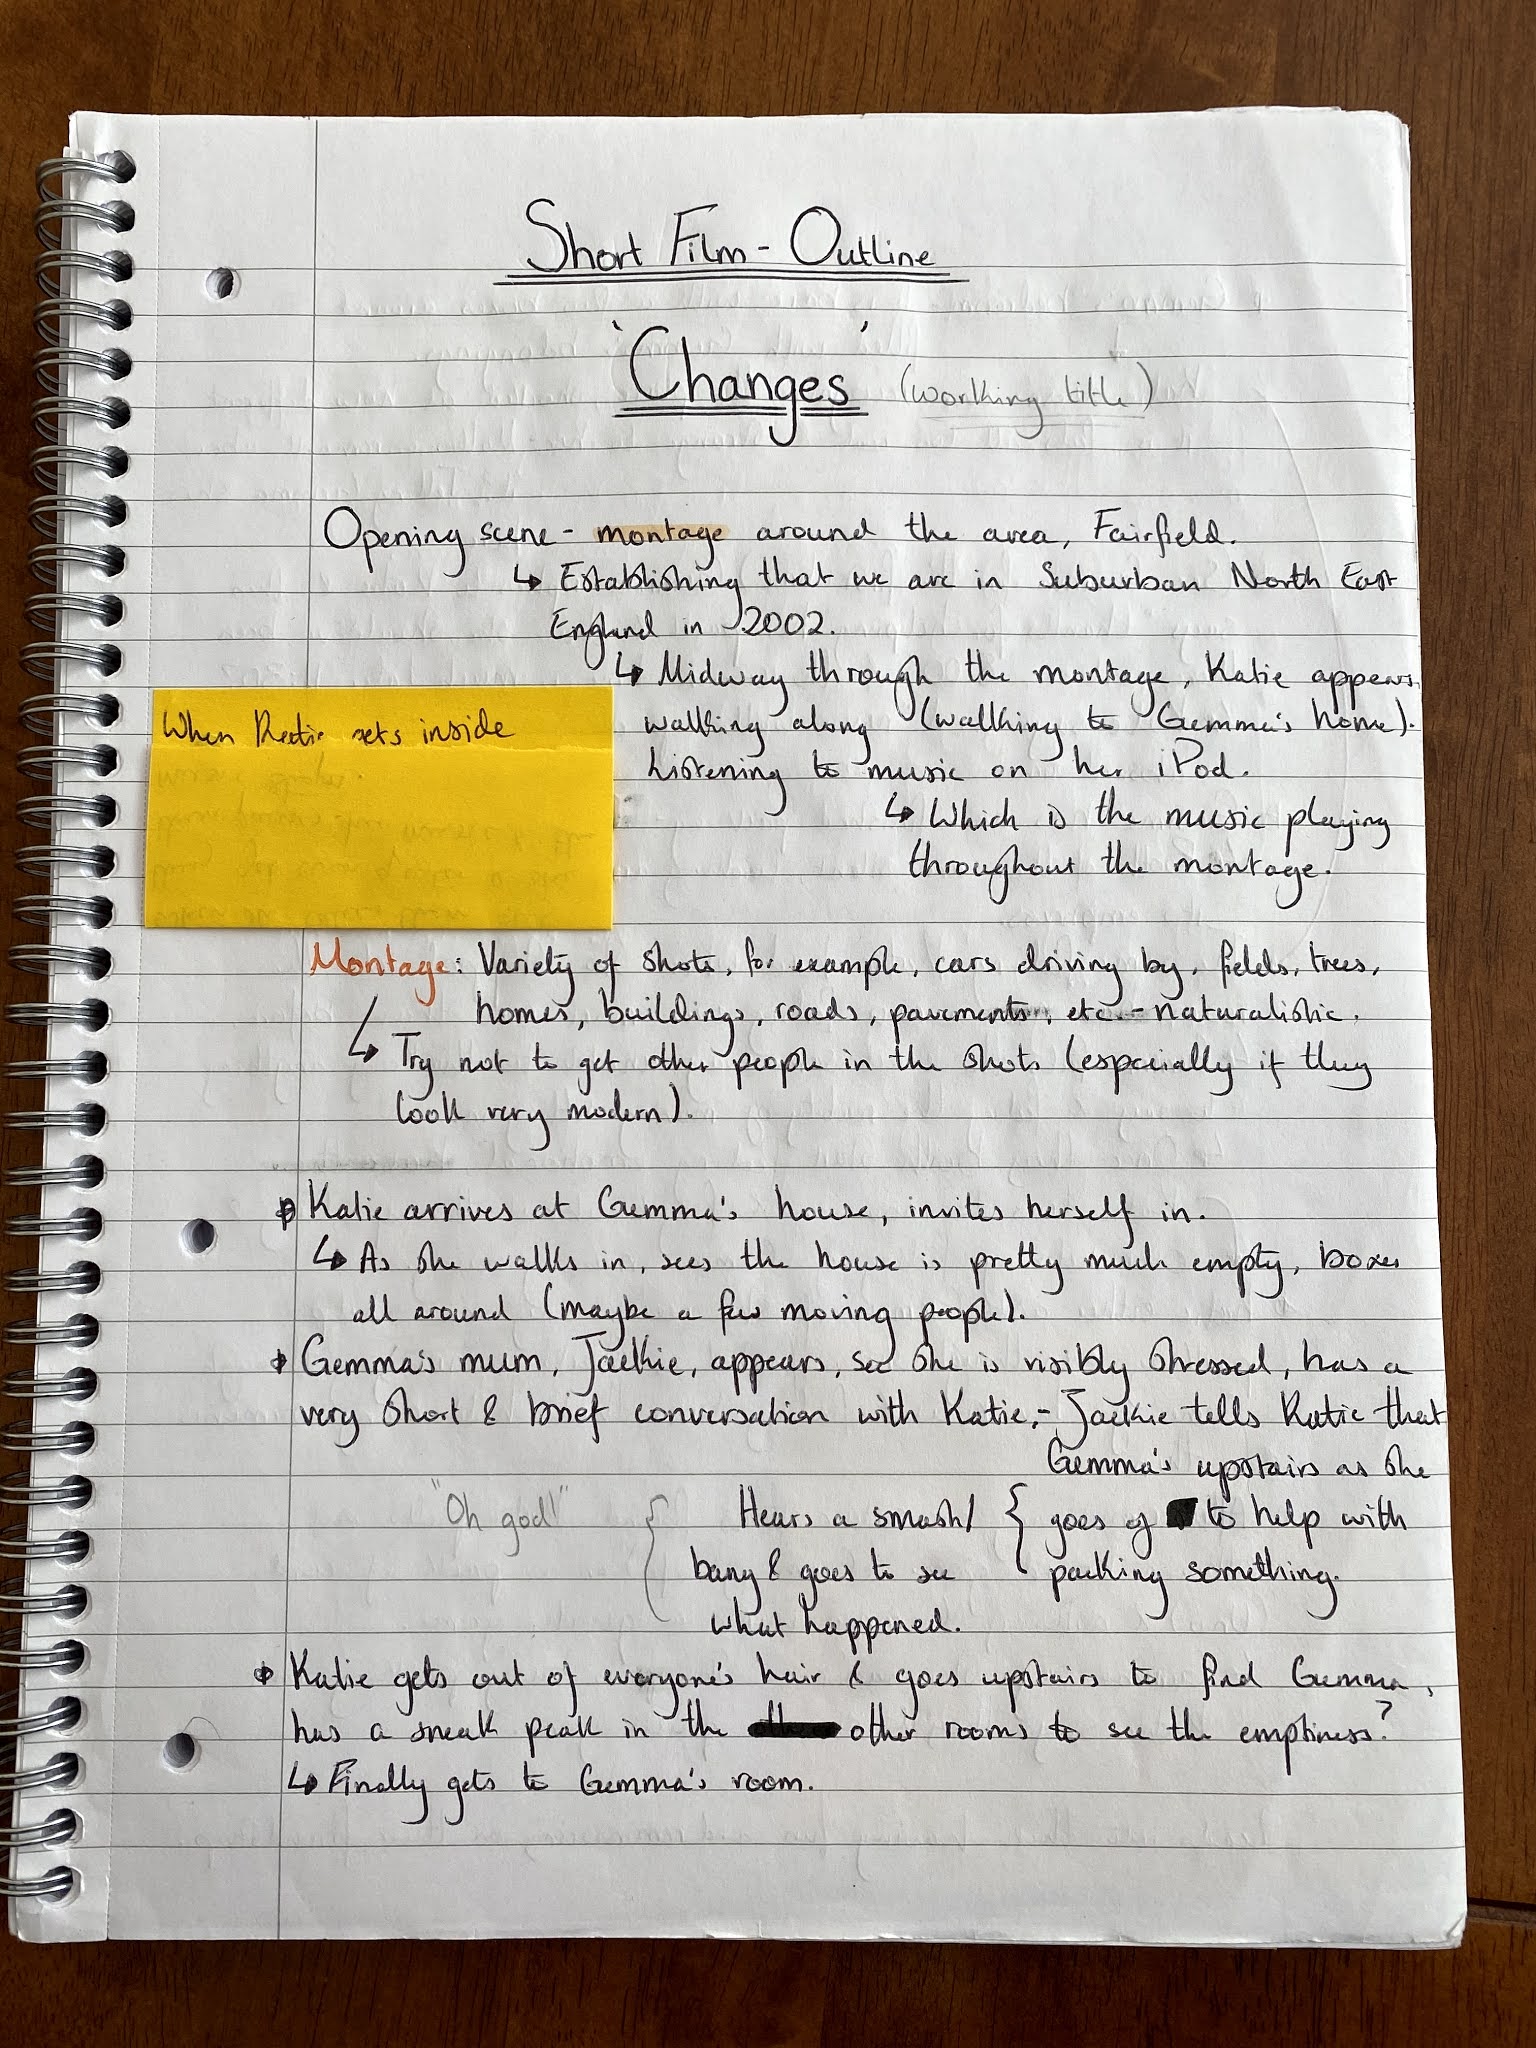 Short Film - Outline
'Changes' (working title)
Opening scene - montage around the area, Fairfield.
↳ Establishing that we are in Suburban North East
England in 2002.
↳ Midway through the montage, Katie appears
walking along (walking to Gemma's home).
Listening to music on her iPod.
↳ Which is the music playing
throughout the montage.
When Katie gets inside
Montage: Variety of shots, for example, cars driving by, fields, trees,
homes, buildings, roads, pavements, etc. - naturalistic.
↳ Try not to get other people in the shots (especially if they
look very modern).
Katie arrives at Gemma's house, invites herself in.
↳ As she walks in, sees the house is pretty much empty, boxes
all around (maybe a few moving people).
Gemma's mum, Jackie, appears, see she is visibly stressed, has a
very short & brief conversation with Katie, - Jackie tells Katie that
Gemma's upstairs as she
goes of to help with
packing something.
Hears a smash/
bang & goes to see
what happened.
"Oh god!"
Katie gets out of everyone's hair & goes upstairs to find Gemma,
has a sneak peak in the other rooms to see the emptiness?
↳ Finally gets to Gemma's room.